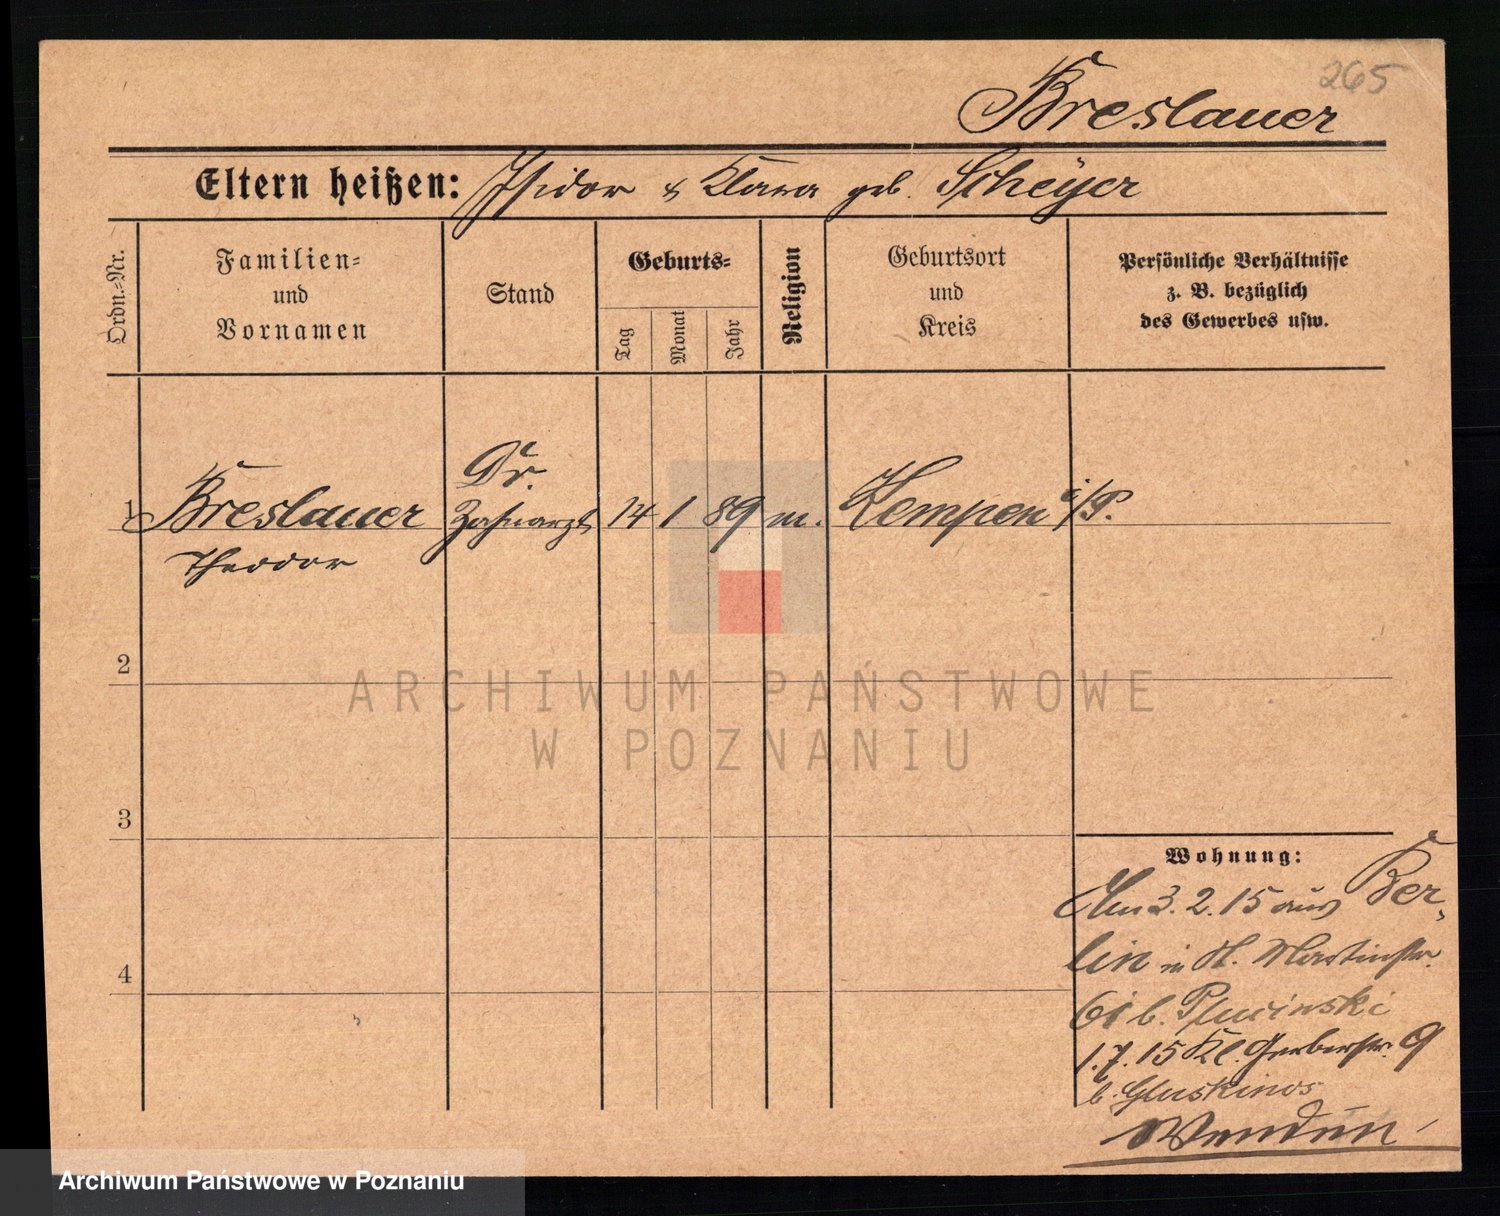 265
Breslauer
Eltern heißen: Isidor & Klara geb. Scheyer
Ordn.=Nr.
Familien=
und
Vornamen
Stand
Geburts=
Tag
Monat
Jahr
Religion
Geburtsort
und
Kreis
Persönliche Verhältnisse
z. B. bezüglich
des Gewerbes usw.
1 Breslauer Dr. Zahnarzt 14 1 89 m. Kempen i/P.
Theodor
2
3
4
Wohnung:
Am 3. 2. 15 aus Ber-
lin in St. Martinstr.
b. Plucinski
1. 7. 15 Kl. Gerberstr. 9
b. Gluskinos
ARCHIWUM PAŃSTWOWE
W POZNANIU
Archiwum Państwowe w Poznaniu